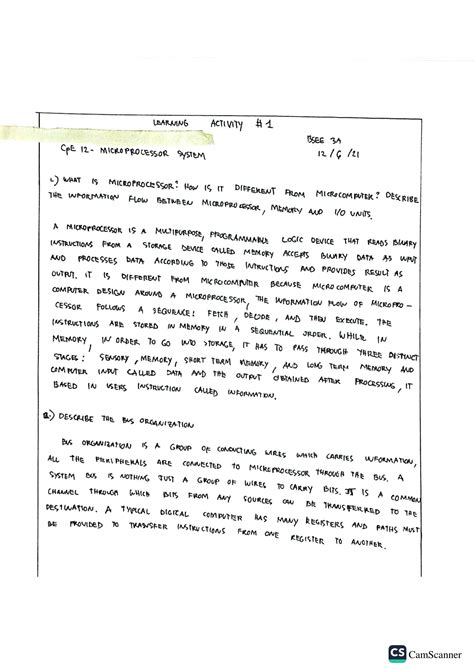 LEARNING ACTIVITY #1
BSEE 3A
CpE 12 - MICROPROCESSOR SYSTEM
12 / 6 / 21
1.) WHAT IS MICROPROCESSOR? HOW IS IT DIFFERENT FROM MICROCOMPUTER? DESCRIBE
THE INFORMATION FLOW BETWEEN MICROPROCESSOR, MEMORY AND I/O UNITS.
A MICROPROCESSOR IS A MULTIPURPOSE, PROGRAMMABLE LOGIC DEVICE THAT READS BINARY
INSTRUCTIONS FROM A STORAGE DEVICE CALLED MEMORY ACCEPTS BINARY DATA AS INPUT
AND PROCESSES DATA ACCORDING TO THOSE INTRUCTIONS AND PROVIDES RESULT AS
OUTPUT. IT IS DIFFERENT FROM MICROCOMPUTER BECAUSE MICROCOMPUTER IS A
COMPUTER DESIGN AROUND A MICROPROCESSOR, THE INFORMATION FLOW OF MICROPRO-
CESSOR FOLLOWS A SEQUENCE: FETCH, DECIDE, AND THEN EXECUTE. THE
INSTRUCTIONS ARE STORED IN MEMORY IN A SEQUENTIAL ORDER. WHILE IN
MEMORY, IN ORDER TO GO INTO STORAGE, IT HAS TO PASS THROUGH THREE DISTINCT
STAGES: SENSORY, MEMORY, SHORT TERM MEMORY, AND LONG TERM MEMORY AND
COMPUTER INPUT CALLED DATA AND THE OUTPUT OBTAINED AFTER PROCESSING, IT
BASED IN USERS INSTRUCTION CALLED INFORMATION.
2.) DESCRIBE THE BUS ORGANIZATION
BUS ORGANIZATION IS A GROUP OF CONDUCTING WIRES WHICH CARRIES INFORMATION,
ALL THE PERIPHERALS ARE CONNECTED TO MICROPROCESSOR THROUGH THE BUS. A
SYSTEM BUS IS NOTHING JUST A GROUP OF WIRES TO CARRY BITS. IT IS A COMMON
CHANNEL THROUGH WHICH BITS FROM ANY SOURCES CAN BE TRANSFERRED TO THE
DESTINATION. A TYPICAL DIGITAL COMPUTER HAS MANY REGISTERS AND PATHS MUST
BE PROVIDED TO TRANSFER INSTRUCTIONS FROM ONE REGISTER TO ANOTHER.
CS CamScanner